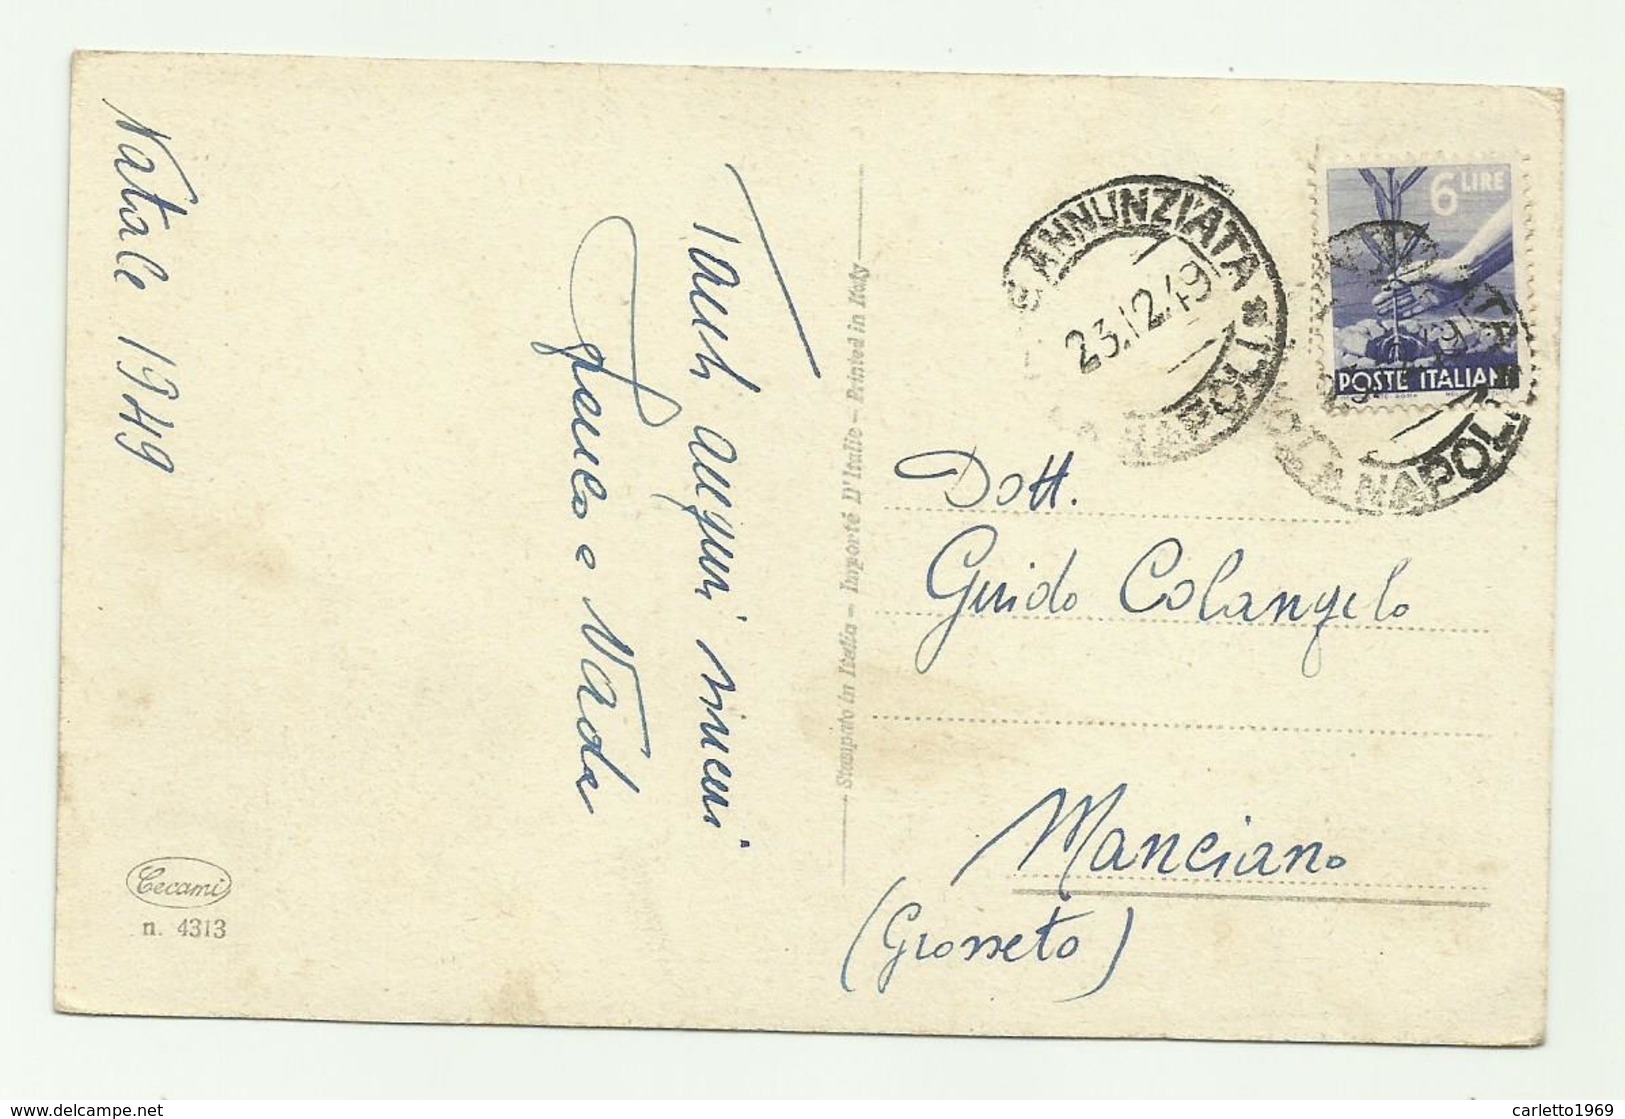 Natale 1949
Tanti auguri sinceri
Franco e Nada
Cecami
n. 4313
Stampato in Italia - Importé D'Italie - Printed in Italy
S. ANNUNZIATA
23.12.49
NAPOLI
6 LIRE
POSTE ITALIANE
NAPOLI
Dott.
Guido Colangelo
Manciano
(Grosseto)
carletto1969